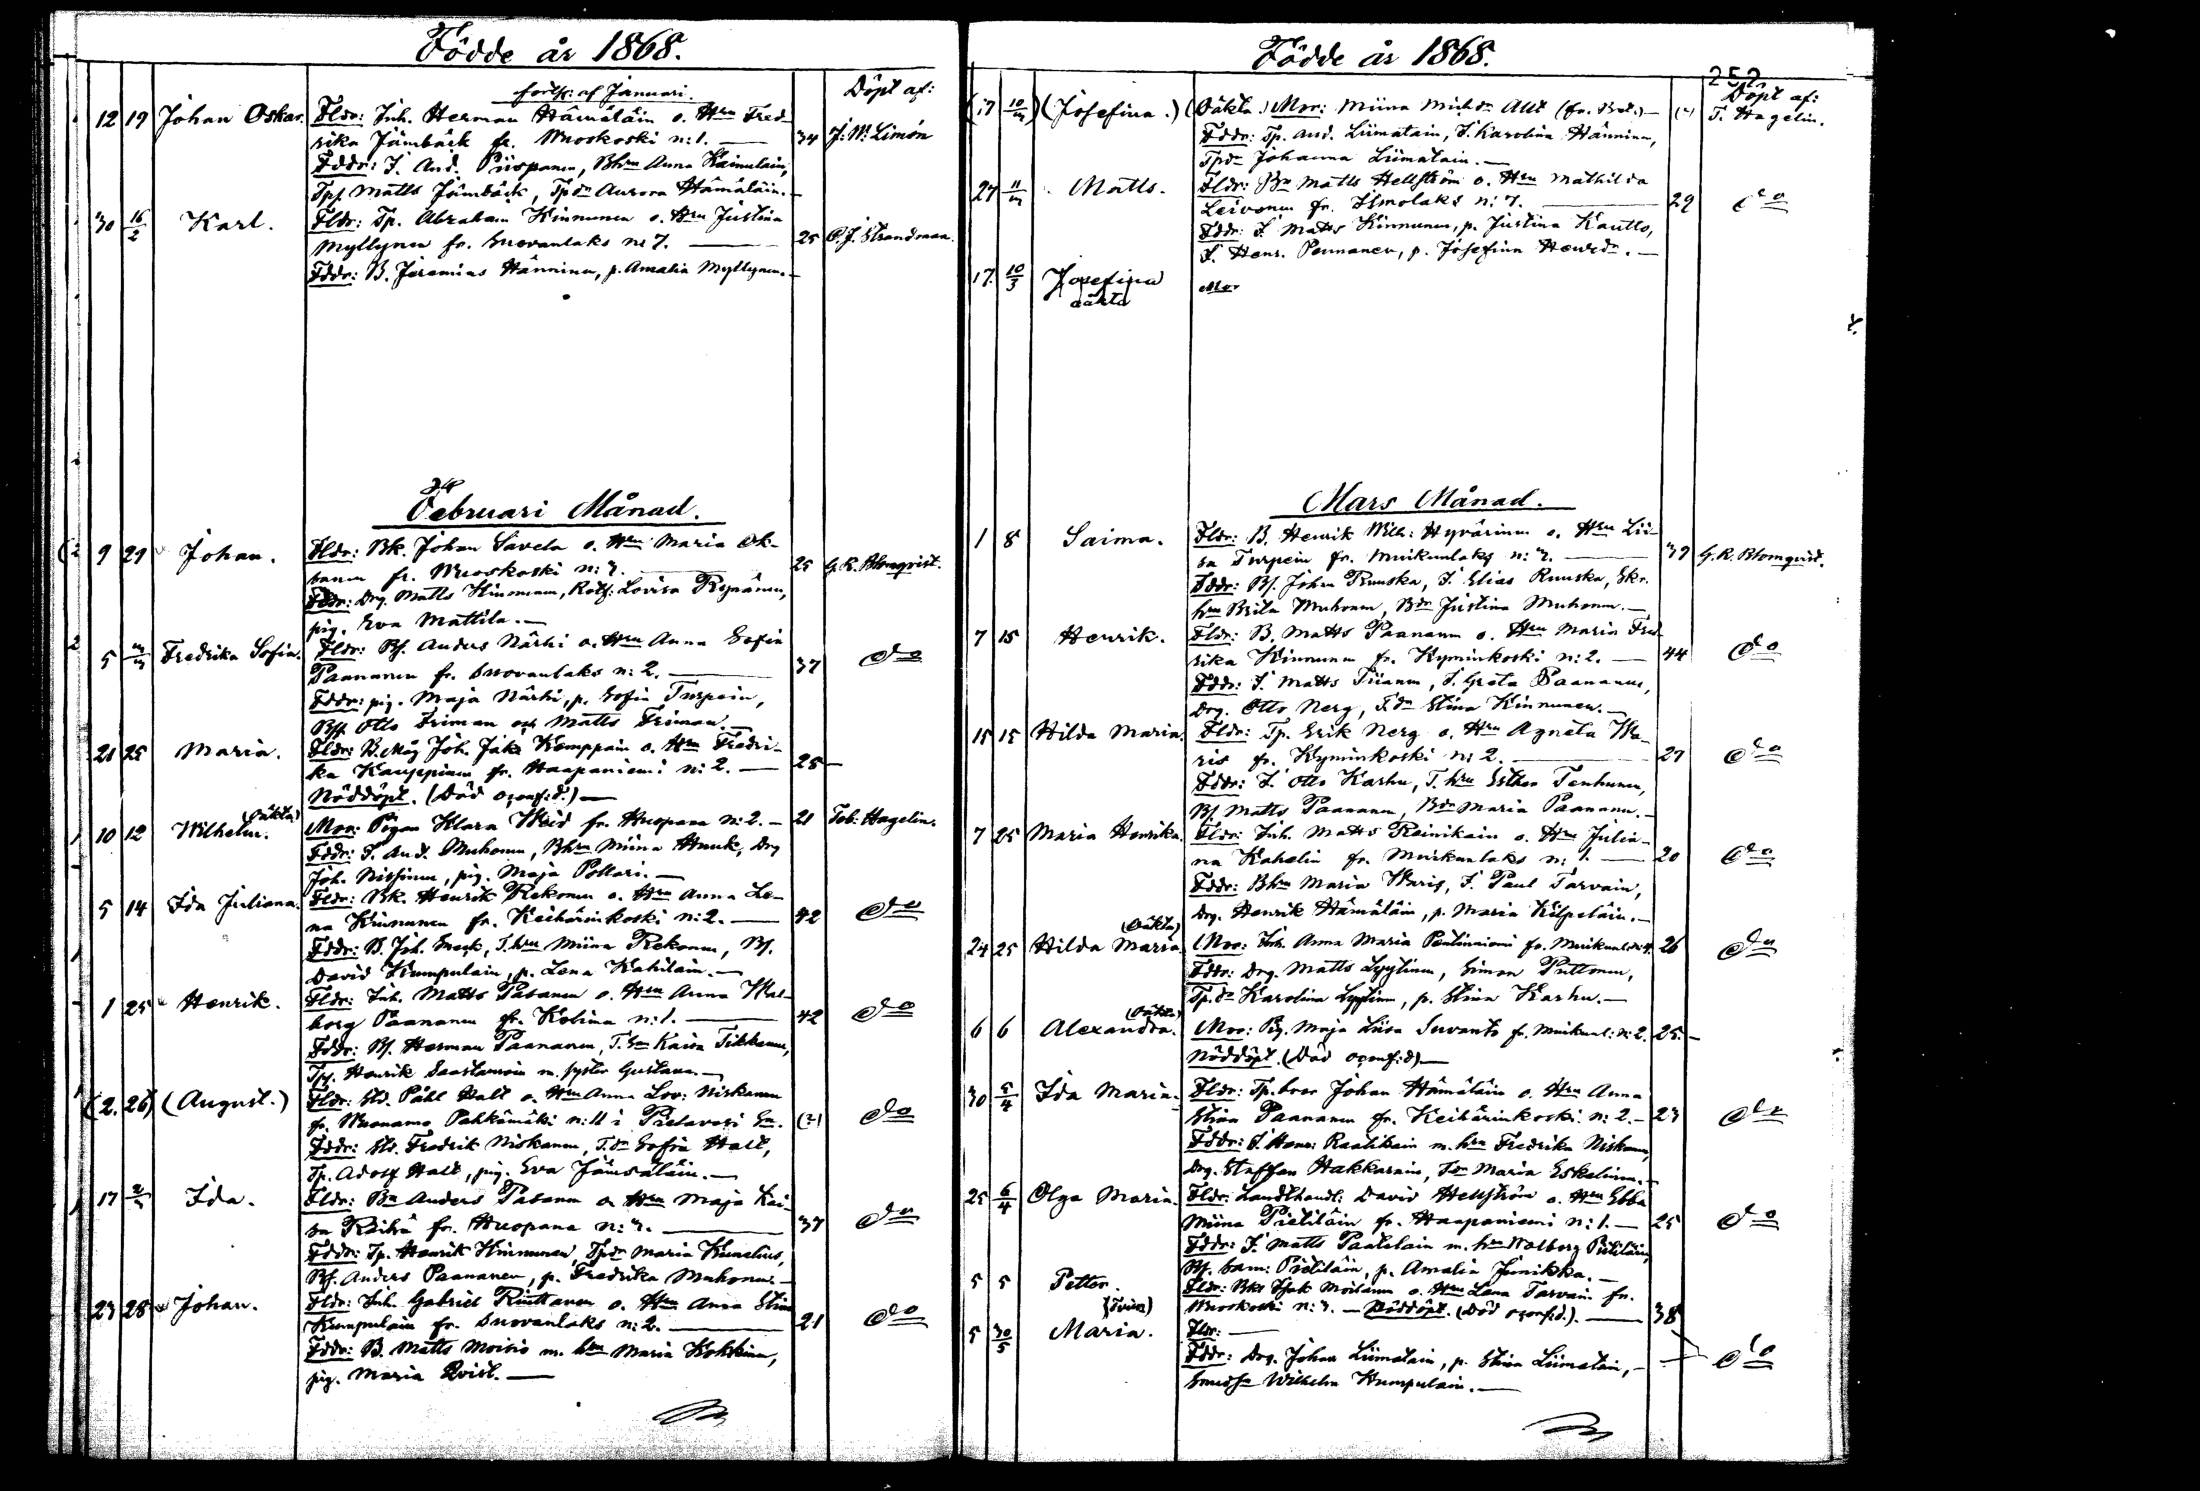 Födde år 1868.
forts: af Januari.
Döpt af:
12 19 Johan Oskar. Fldr: Inh. Herman Hämäläin o. Hru Fred-
rika Jämbäck fr. Wuoskoski n:1. — 34 J. W. Limón
Fddr: I. And. Piispanen, Bhru Anna Kainulain,
Tps. Matts Jämbäck, Tpdr Aurora Hämäläin. —
30 16/2 Karl. Fldr: Tp. Abraham Kinnunen o. Hru Justina
Myllynen fr. Suovanlaks n: 7. — 25 C. J. Strandman.
Fddr: B. Jeremias Hänninen, p. Amalia Myllynen. —
Februari Månad.
9 29 Johan. Fldr: Bk. Johan Savela o. Hru Maria Ok-
sanen fr. Wuoskoski n: 7. — 25 G. R. Blomqvist.
Fddr: Drg. Matts Kinnunen, Rotf: Lovisa Rynänen,
pig. Eva Mattila. —
5 Fredrika Sofia. Fldr: Bs. Anders Närhi o. Hru Anna Sofia
Paananen fr. Suovanlaks n: 2. — 37 do
Fddr: pig. Maja Närhi, p. Sofia Turpein,
Bss Otto Friman och Matts Friman. —
21 25 Maria. Fldr: B. Måg Joh. Jak. Kemppain o. Hru Fredri-
ka Kauppinen fr. Haapaniemi n: 2. — 25 —
Nöddöpt. (Död oconf:d.) —
10 12 Wilhelm. (oäkta) Mor: Pigan Klara Weid fr. Huopana n: 2. — 21 Tob: Hagelin.
Fddr: I. And. Muhonen, Bhru Miina Hauk, Drg
Joh. Nissinen, pig. Maja Pollari. —
5 14 Ida Juliana. Fldr: Bk. Henrik Rekonen o. Hru Anna Le-
na Kinnunen fr. Keihärinkoski n: 2. — 42 do
Fddr: B. Joh. Seck, I. hru Miina Rekonen, Bs.
David Kumpulain, p. Lena Kahilain. —
1 25 Henrik. Fldr: Inh. Matts Pasanen o. Hru Anna Wal-
borg Paananen fr. Kolima n: 1. — 42 do
Fddr: Bs. Herman Paananen, T. Kaisa Tikkanen,
Tps. Henrik Saastamoin m. syster Gustava. —
(2. 26) (August.) Fldr: Std. Påhl Halt o. Hru Anna Lov: Niskanen
fr. Wuonamo Pahkamäki n: 11 i Pielavesi Sn. do
Fddr: Std. Fredrik Niskanen, I. dr Sofia Halt,
Tp. Adolf Halt, pig. Eva Jämsäläin. —
17 Ida. Fldr: Bn Anders Pasanen o. Hru Maja Kai-
sa Raitä fr. Huopana n: 7. — 37 do
Fddr: Tp. Henrik Kinnunen, Tpdr Maria Kunelius,
Bs. Anders Paananen, p. Fredrika Muhonen. —
23 28 Johan. Fldr: Inh. Gabriel Riuttanen o. Hru Anna Stina
Kumpulain fr. Suovanlaks n: 2. — 21 do
Fddr: B. Matts Moisio m. hru Maria Kokkinen,
pig. Maria Qvist. —
Födde år 1868.
252.
Döpt af:
(17 10/3) (Josefina.) (Oäkta.) Mor: Miina Mich:dr Ahl T. Hagelin.
Fddr: Tp. And. Liimatain, I. Karolina Hänninen,
Tpdr Johanna Liimatain. —
27 Matts. Fldr: Bn Matts Hellström o. Hru Mathilda
Leivonen fr. Ilmolaks n: 7. — 29 do
Fddr: I. Matts Kinnunen, p. Justina Kautto,
I. Henr. Pennanen, p. Josefina Henr.dr. —
17. 10/3 Josefina Mor
oäkta
Mars Månad.
1 8 Saima. Fldr: B. Henrik Wilh: Hyvärinen o. Hru Lii-
sa Turpein fr. Muikunlaks n: 7. — 39 G. R. Blomqvist.
Fddr: Bs. Johan Ruuska, I. Elias Ruuska, Skr.
hru Brita Muhonen, Bdr Justina Muhonen. —
7 15 Henrik. Fldr: B. Matts Paananen o. Hru Maria Fred-
rika Kinnunen fr. Kyminkoski n: 2. — 44 do
Fddr: I. Matts Piianen, I. Greta Paananen,
Drg. Otto Nerg, I. dr Stina Kinnunen. —
15 15 Hilda Maria. Fldr: Tp. Erik Nerg o. Hru Agneta Wa-
ris fr. Kyminkoski n: 2. — 27 do
Fddr: I. Otto Karhu, I. hru Esther Tenhunen,
Bs. Matts Paananen, Bdr Maria Paananen. —
7 25 Maria Henrika. Fldr: Inh. Matts Reinikain o. Hru Julia-
na Kahelin fr. Muikunlaks n: 1. — 20 do
Fddr: Bhru Maria Waris, I. Paul Tarvain,
Drg. Henrik Hämäläin, p. Maria Kilpeläin. —
24 25 Hilda Maria. (Oäkta) Mor: Inh. Anna Maria fr. Muikunl: 26 do
Fddr: Drg. Matts Lyytinen, Simon Puttonen,
Tp. dr Karolina Lyytinen, p. Stina Karhu. —
6 6 Alexandra. (Oäkta) Mor: Pig. Maja Liisa Suvanto fr. Muikunl: n: 2. 25. —
Nöddöpt. (Död oconf:d) —
30 5/4 Ida Maria. Fldr: Tp. bror Johan Hämäläin o. Hru Anna
Stina Paananen fr. Keihärinkoski n: 2. — 23 do
Fddr: I. Henr: Raatikain m. hru Fredrika Niskanen,
Drg. Staffan Hakkarain, I. dr Maria Eskelinen. —
25 6/4 Olga Maria. Fldr: Landthandl: David Hellström o. Hru Ebba
Miina Pietiläin fr. Haapaniemi n: 1. — 25 do
Fddr: I. Matts Paatelain m. hru Walborg Pietiläin,
Bs. Sam: Pietiläin, p. Amalia Junikka. —
5 5 Petter. Fldr: Bks Isak Moilanen o. Hru Lena Tarvain fr.
(Tvill) Wuoskoski n: 7. — Nöddöpt. (Död oconf:d.). — 38
5 30/5 Maria. Fldr: —
Fddr: Drg. Johan Liimatain, p. Stina Liimatain, — do
Wilhelm Kumpulain. —